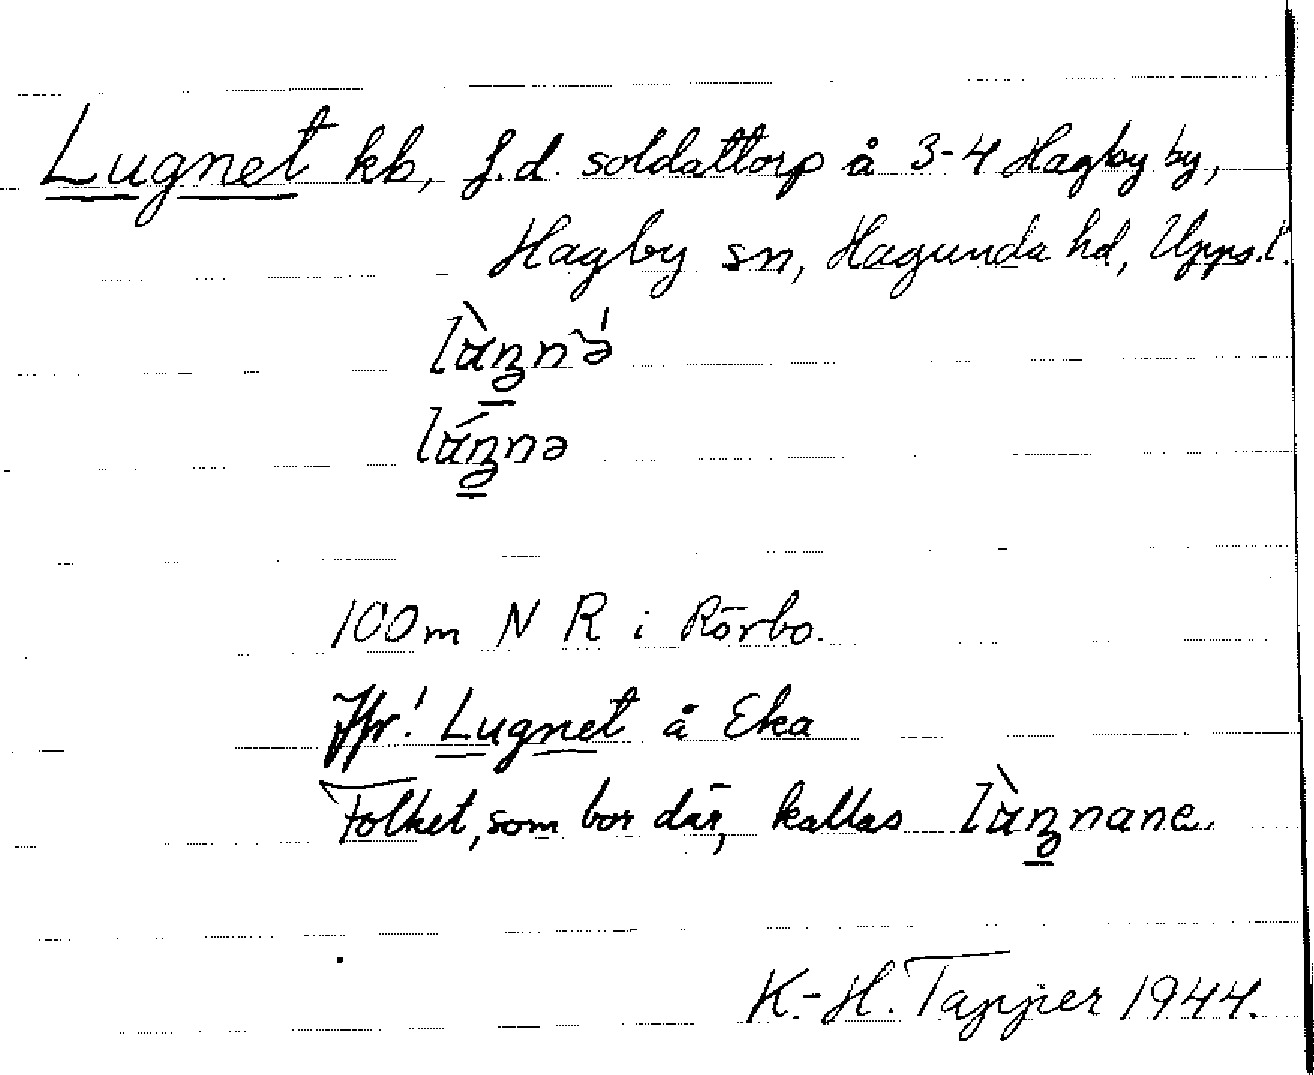 Lugnet kb, f.d. soldattorp å 3-4 Hagby by,
Hagby sn, Hagunda hd, Upps.l.
100m N R i Rörbo.
Jfr! Lugnet å Eka
Folket, som bor där, kallas
K.-H. Tappjer 1944.